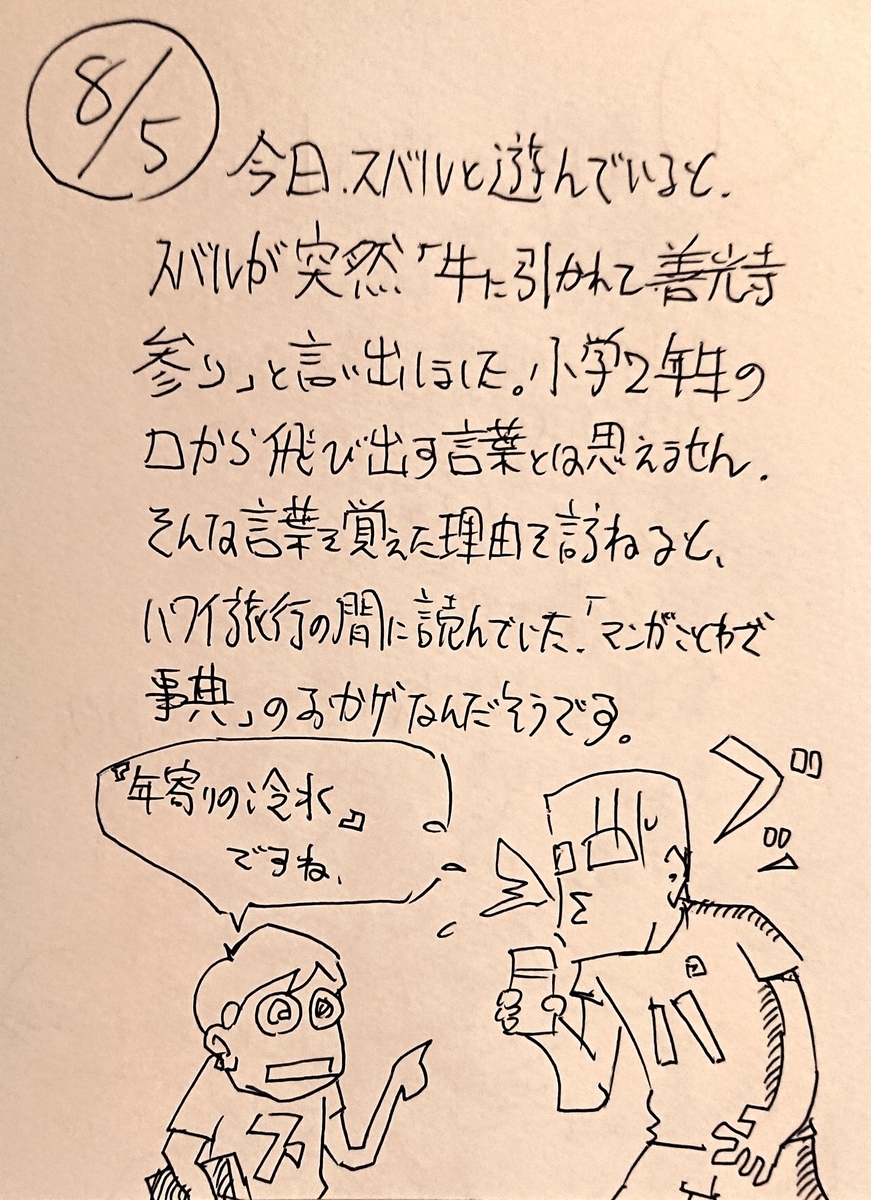 8/5
今日、スバルと遊んでいると、
スバルが突然「牛に引かれて善光寺
参り」と言い出しました。小学2年生の
口から飛び出す言葉とは思えません。
そんな言葉を覚えた理由を訪ねると、
ハワイ旅行の間に読んでいた、「マンガことわざ
事典」のおかげなんだそうです。
『年寄りの冷水』
ですね、
ブッ
ス
パ